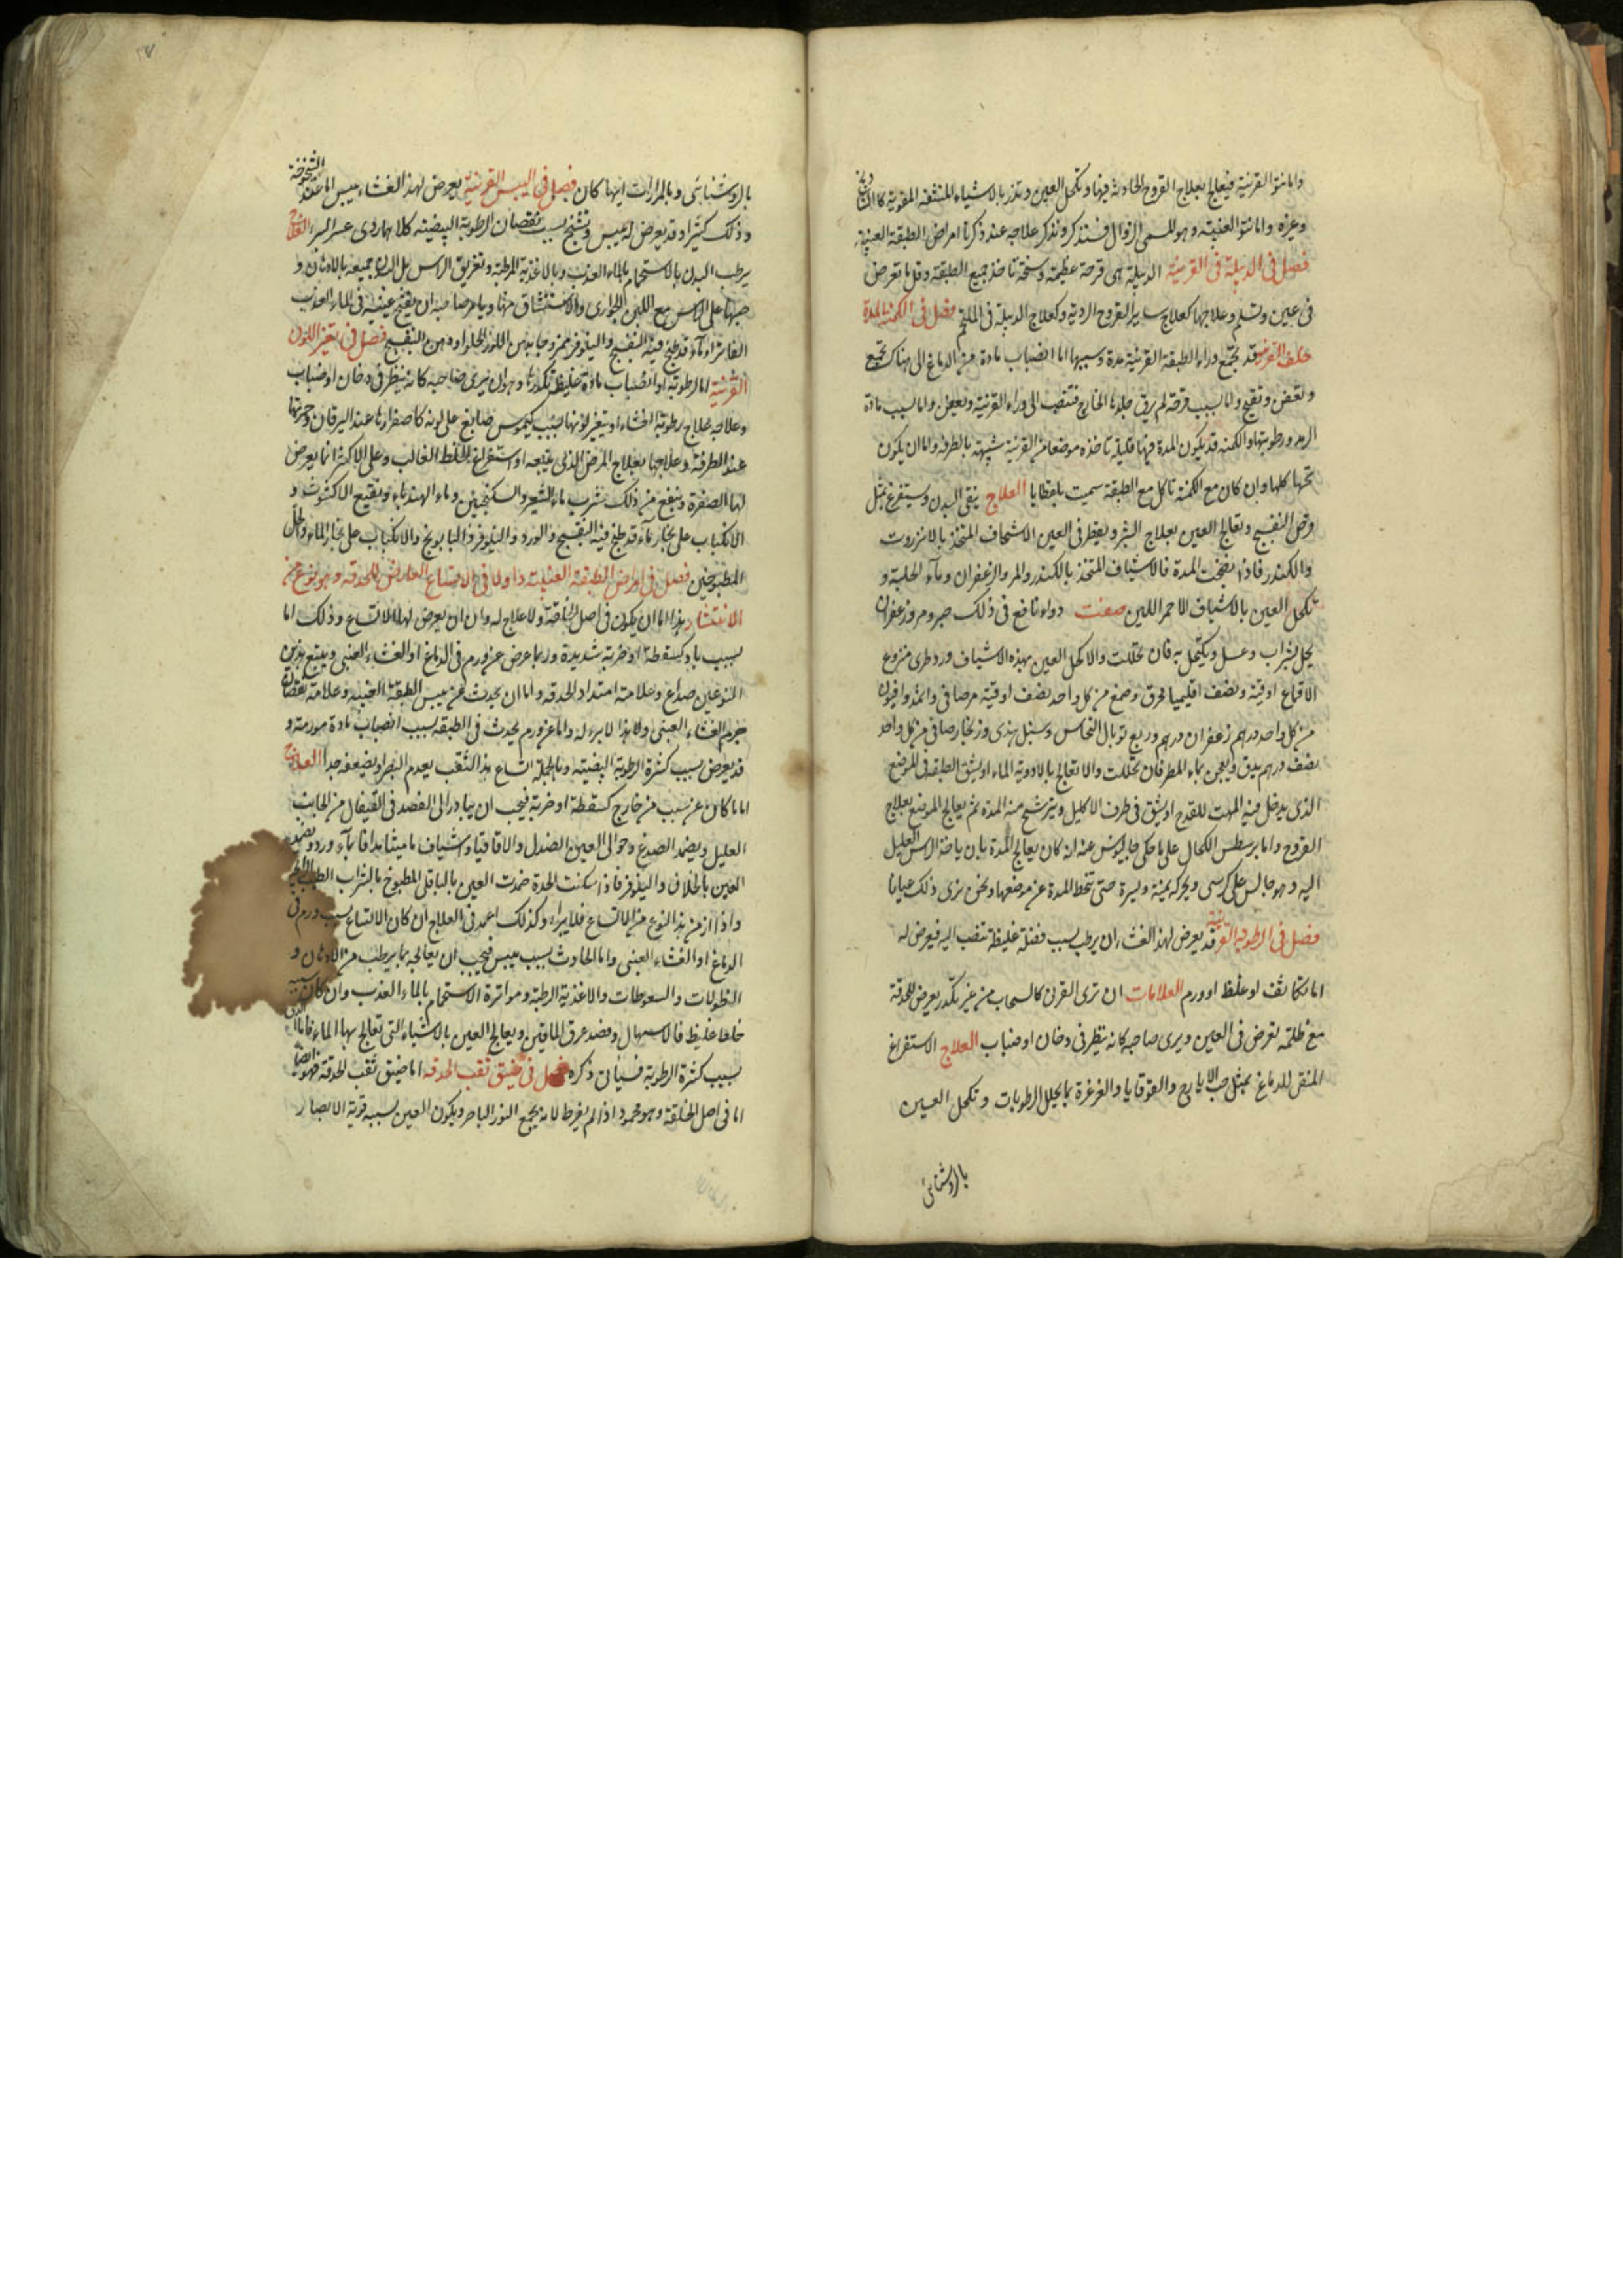 واما نتوّ القرنية فيعالج بعلاج القروح الحادثة فيها وتكحل العين وتذر بالاشياء المنشفة المقوية كالشاذنج
وغيره واما نتوّ العنبية وهو المسمى الزوال فسنذكره ونذكر علاجه عند ذكرنا امراض الطبقة العنبية
فصل فى الدبيلة فى القرنية الدبيلة هى قرحة عظيمة وسخة تاخذ جميع الطبقة وقل ما تعرض
فى عين وتسلم وعلاجها كعلاج ساير القروح الردية وكعلاج الدبيلة فى الملتحم فصل فى الكمنة المدة
خلف القرنية قد تجتمع وراء الطبقة القرنية مدة وسببها اما انصباب مادة من الدماغ الى هناك تجتمع
وتعفن وتقيح واما بسبب قرحة لم يرق جلدها الخارج فتنصب الى وراء القرنية وتعفن واما لسبب مادة
الرمد ورطوبتها والكمنة قد يكون المدة فيها قليلة تاخذه موضعا من القرنية شبيهة بالظفرة واما ان يكون
تحتها كلها وان كان مع الكمنة تاكل مع الطبقة سميت باقطايا العلاج ينقى البدن ويستفرغ بمثل
قرص البنفسج وتعالج العين بعلاج البثر ويقطر فى العين الاشياف المتخذ بالانزروت
والكندر فاذا نضجت المدة فالاشياف المتخذ بالكندر والمر والزعفران وماء الحلبة و
تكحل العين بالاشياف الاحمر اللين صفت دواء نافع فى ذلك صبر ومر وزعفران
يحل بشراب وعسل ويكتحل به فان تحللت والا كحل العين بهذه الاشياف ورد طرى منزوع
الاقماع اوقية ونصف اقليميا محرق وصمغ من كل واحد نصف اوقية مر صافى واثمد وافيون
من كل واحد درهم زعفران درهم وربع توبال النحاس وسنبل هندى وزنجار صافى من كل واحد
نصف درهم يدق ويعجن بماء المطر فان تحللت والا تعالج بالادوية الماء او يشق الطبقة فى الموضع
الذى يدخل فيه المهت للقدح او يشق فى طرف الاكليل ويترشح منه المدة ثم يعالج الموضع بعلاج
القروح واما برسطس الكحال على ما حكى جالينوس عنه انه كان يعالج المدة بان ياخذ الراس العليل
اليه وهو جالس على كرسى ويحركه يمنة ويسرة حتى تنحط المدة عن موضعها ونحن نرى ذلك عيانا
فصل فى الرطوبة القرنية قد يعرض لهذا الغشاء ان يرطب بسبب فضلة غليظة تنصب اليه فيعرض له
اما تكاثف او غلظ او ورم العلامات ان ترى القرنى كالسحاب من غير تكدر يعرض للحدقة
مع ظلمة تعرض فى العين ويرى صاحبه كانه ينظر فى دخان او ضباب العلاج الاستفراغ
المنقى للدماغ بمثل حب الايارج والقوقايا والغرغرة بما يحلل الرطوبات وتكحل العين
بالروشنايى
بالروشنايى وبالمرارات ايها كان فصل فى اليبس القرنية يعرض لهذا الغشاء يبس اما عند الشيخوخة
وذلك كثيرا وقد يعرض له يبس وتشنج بسبب نقصان الرطوبة البيضية كلاهما ردى عسر البرء العلاج
يرطب البدن بالاستحمام بالماء العذب وبالاغذية المرطبة وتغريق الراس بل البدن جميعه بالادهان و
صبها على الراس مع اللبن الجوارى والاستنشاق منها ويامر صاحبه ان يفتح عينيه فى الماء العذب
الفاتر او ماء قد طبخ فيه البنفسج والنيلوفر ممزوجا بدهن اللوز الحلو او دهن البنفسج فصل فى تغير اللون
القرنية اما لرطوبة او انصباب مادة غليظة تكدرها وهو ان يرى صاحبه كانه ينظر فى دخان او ضباب
وعلاجه علاج رطوبة الغشاء او يتغير لونها بسبب كيموس صابغ على لونه كاصفرارها عند اليرقان وحمرتها
عند الطرفة وعلاجها بعلاج المرض الذى يتبعه او استفراغ الخلط الغالب وعلى الاكثر انما يعرض
لها الصفرة وينفع من ذلك شرب ماء الشعير والسكنجبين وماء الهندباء ونقيع الاكشوث و
الانكباب على بخار ماء قد طبخ فيه البنفسج والورد والنيلوفر والبابونج والانكباب على بخار الماء والخل
المطبوخين فصل فى امراض الطبقة العنبية واولا فى الاتساع العارض للحدقة وهو نوع من
الانتشار هذا اما ان يكون فى اصل الخلقة ولا علاج له وان ان يعرض لها الاتساع وذلك اما
بسبب باد كسقطة او ضربة شديدة وربما عرض عن ورم فى الدماغ او الغشاء العنبى ويتبع هذين
النوعين صداع وعلامته امتداد الحدقة واما ان يحدث عن يبس الطبقة العنبية وعلامته نقصان
جرم الغشاء العنبى وهذا لا برء له واما عن ورم يحدث فى الطبقة بسبب انصباب مادة مورمة و
قد يعرض بسبب كثرة الرطوبة البيضية وبالجملة اتساع هذا الثقب يعدم البصر او يضعفه جدا العلاج
اما ما كان عن سبب من خارج كسقطة او ضربة فيجب ان يبادر الى الفصد فى القيفال من الجانب
العليل ويضمد الصدغ وحوالى العين بالصندل والاقاقيا واشياف ماميثا مدافا بماء ورد ويضمد
العين بالخلاف والنيلوفر فاذا سكنت الحدة ضمدت العين بالباقلى المطبوخ بالشراب الطيب
واذا ازمن هذا النوع من الاتساع فلا يبراء وكذلك اعمد فى العلاج ان كان الاتساع بسبب ورم فى
الدماغ او الغشاء العنبى واما الحادث بسبب يبس فيجب ان يعالجه بما يرطب من الادهان و
النطولات والسعوطات والاغذية الرطبة ومواترة الاستحمام بالماء العذب وان كان سببه
خلطا غليظا فالاسهال وفصد عرق الماقين ويعالج العين بالاشياء التى تعالج بها الماء فاما الذى
بسبب كثرة الرطوبة فسياتى ذكره فصل فى ضيق ثقب الحدقة اما ضيق ثقب الحدقة فهو ايضا
اما فى اصل الخلقة وهو محمود اذا لم يفرط لانه يجمع النور الباصر ويكون العين بسببه قوية الابصار